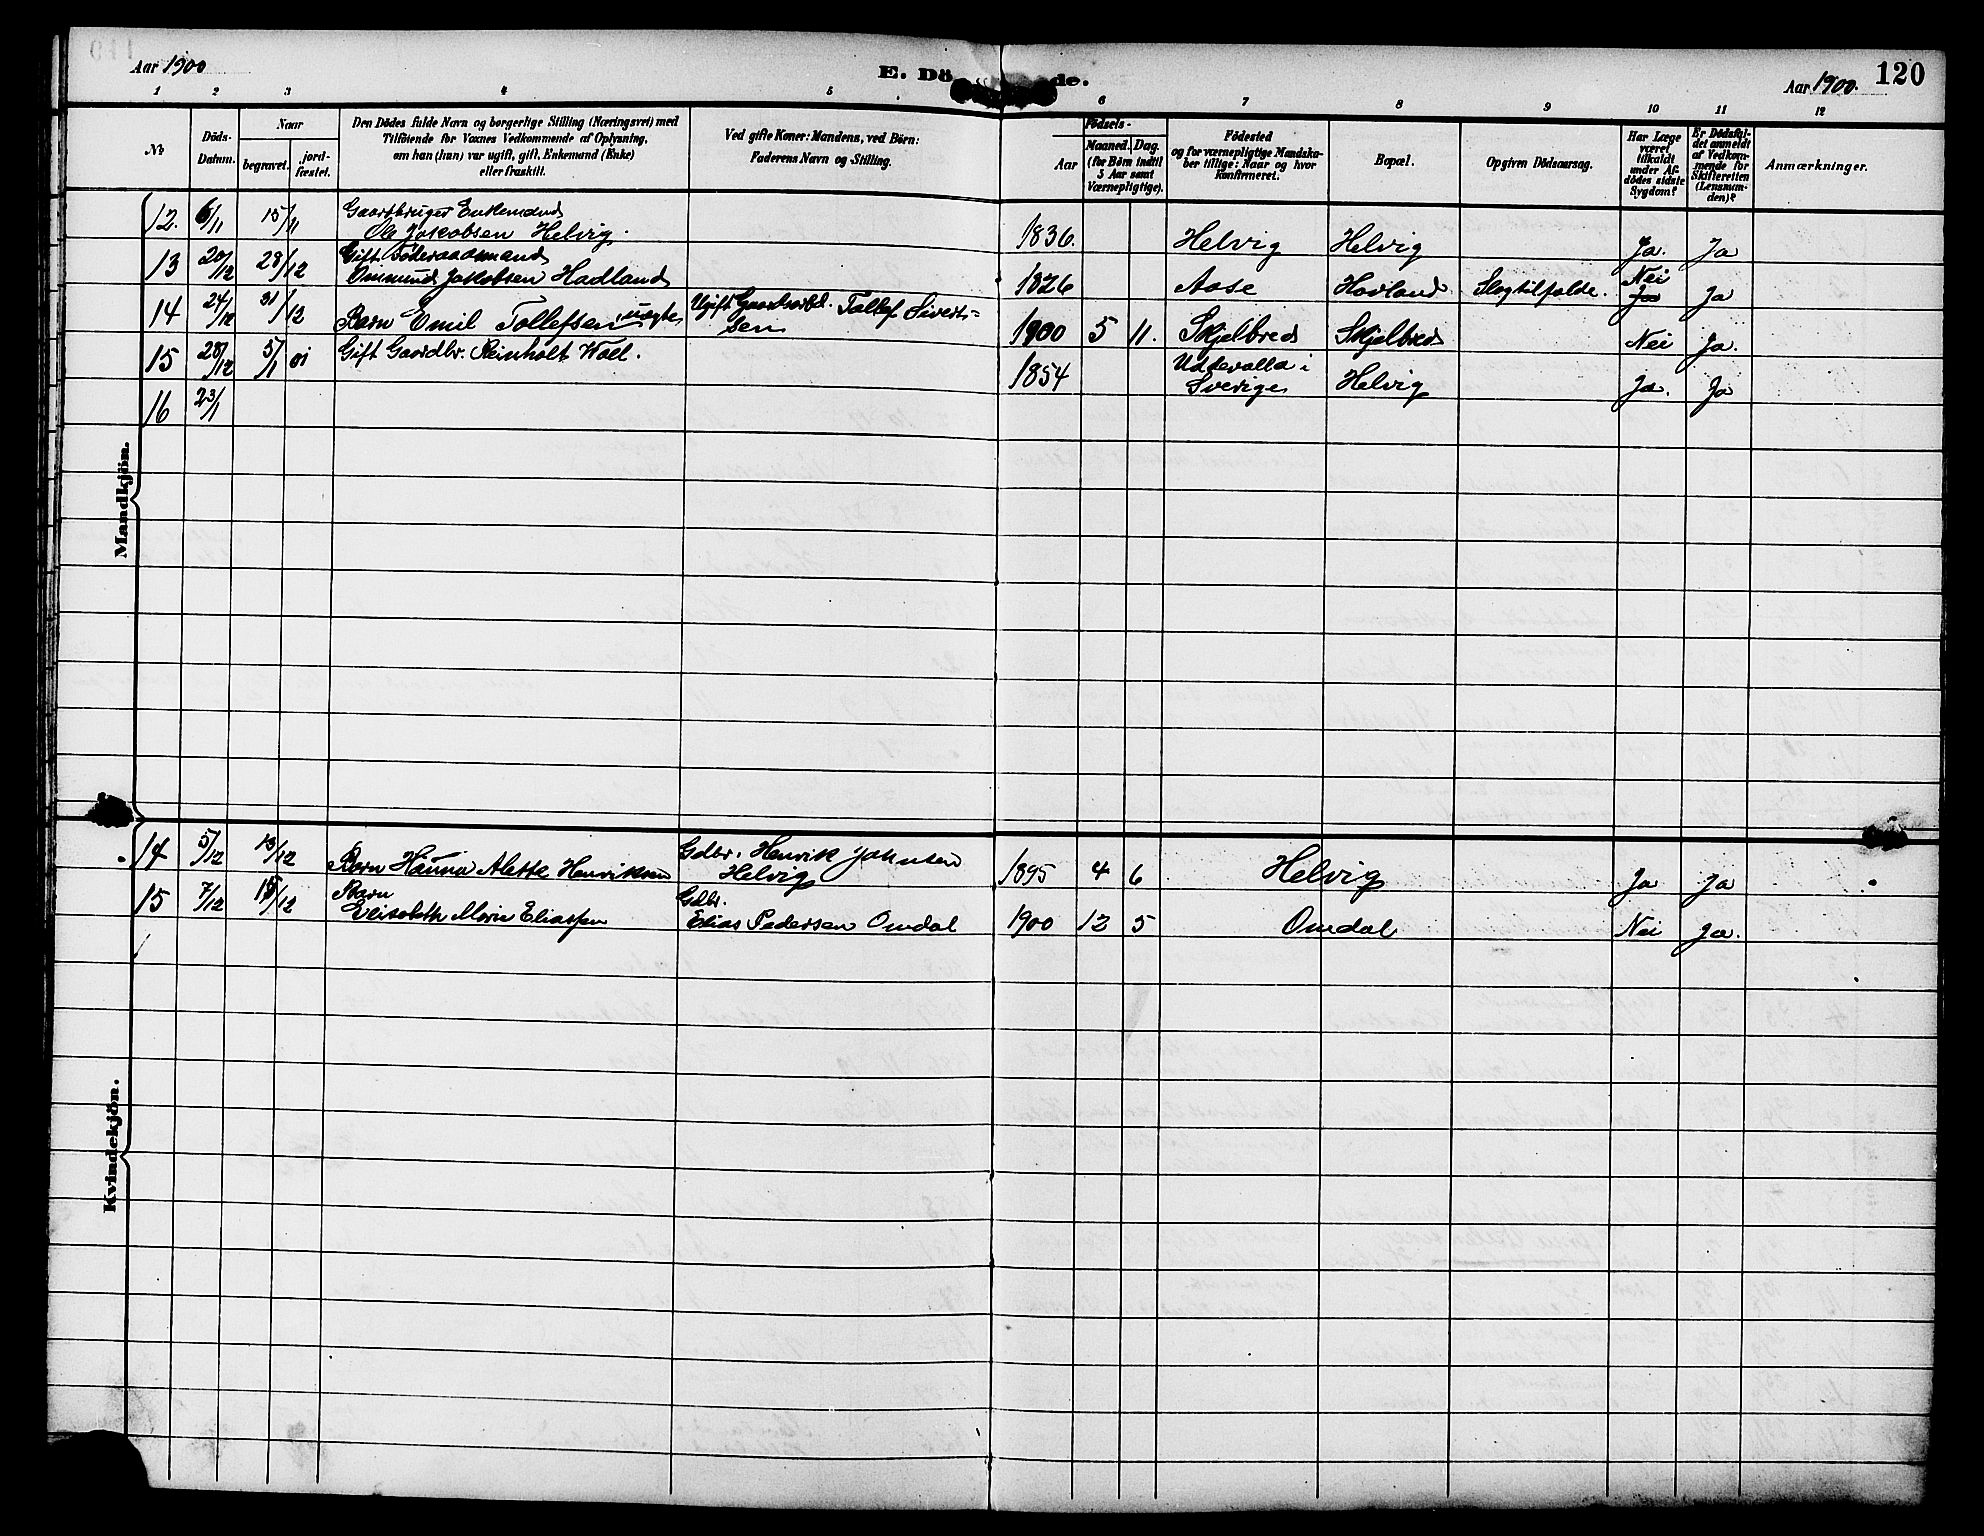 Aar 1900
E. Dö de.
Aar 1900. 120
1 2 3 4 5 6 7 8 9 10 11 12
№
Döds-
Datum.
Naar
begravet.
jord-
fæstet.
Den Dödes fulde Navn og borgerlige Stilling (Næringsvei) med
Tilföiende for Voxnes Vedkommende af Oplysning,
om han (hun) var ugift, gift, Enkemand (Enke)
eller fraskilt.
Ved gifte Koner: Mandens, ved Börn:
Faderens Navn og Stilling.
Födsels-
Aar
Maaned. Dag.
(for Börn indtil
5 Aar samt
Værnepligtige).
Födested
og for værnepligtige Mandska-
ber tillige: Naar og hvor
Konfirmeret.
Bopæl.
Opgiven Dödsaarsag.
Har Læge
været
tilkaldt
under Af-
dödes sidste
Sygdom?
Er Dödsfal-
det anmeldt
af Vedkom-
mende for
Skifteretten
(Lensman-
den)?
Anmærkninger.
Mandkjön.
12. 6/11 15/11 Gaardbruger Enkemand
Ole Jakobsen Helvig. 1836. Helvig Helvig Ja. Ja
13 20/12 28/12 Gift Föderaadmand
Aasmund Jakobsen Hadland 1826 Aase Hovland Slagtilfælde. Nei Ja
14 24/12 31/12 Barn Emil Tollefsen, uægte Ugift Gaardsarbd. Tollef Siverts-
sen 1900 5 11. Skjelbred Skjelbred Ja Nei Ja.
15 28/12 5/1 01 Gift Gaardbr. Reinholt Woll. 1854 Uddevalla i
Sverige Helvig Ja. Ja
16 23/1
Kvindekjön.
14 5/12 13/12 Barn Hanna Alette Henriksen Gdbr. Henrik Johnsen
Helvig 1895 4 6 Helvig Ja Ja
15 7/12 15/12 Barn
Elisabeth Marie Eliassen Gdbr.
Elias Pedersen Omdal 1900 12 5 Omdal Nei Ja.